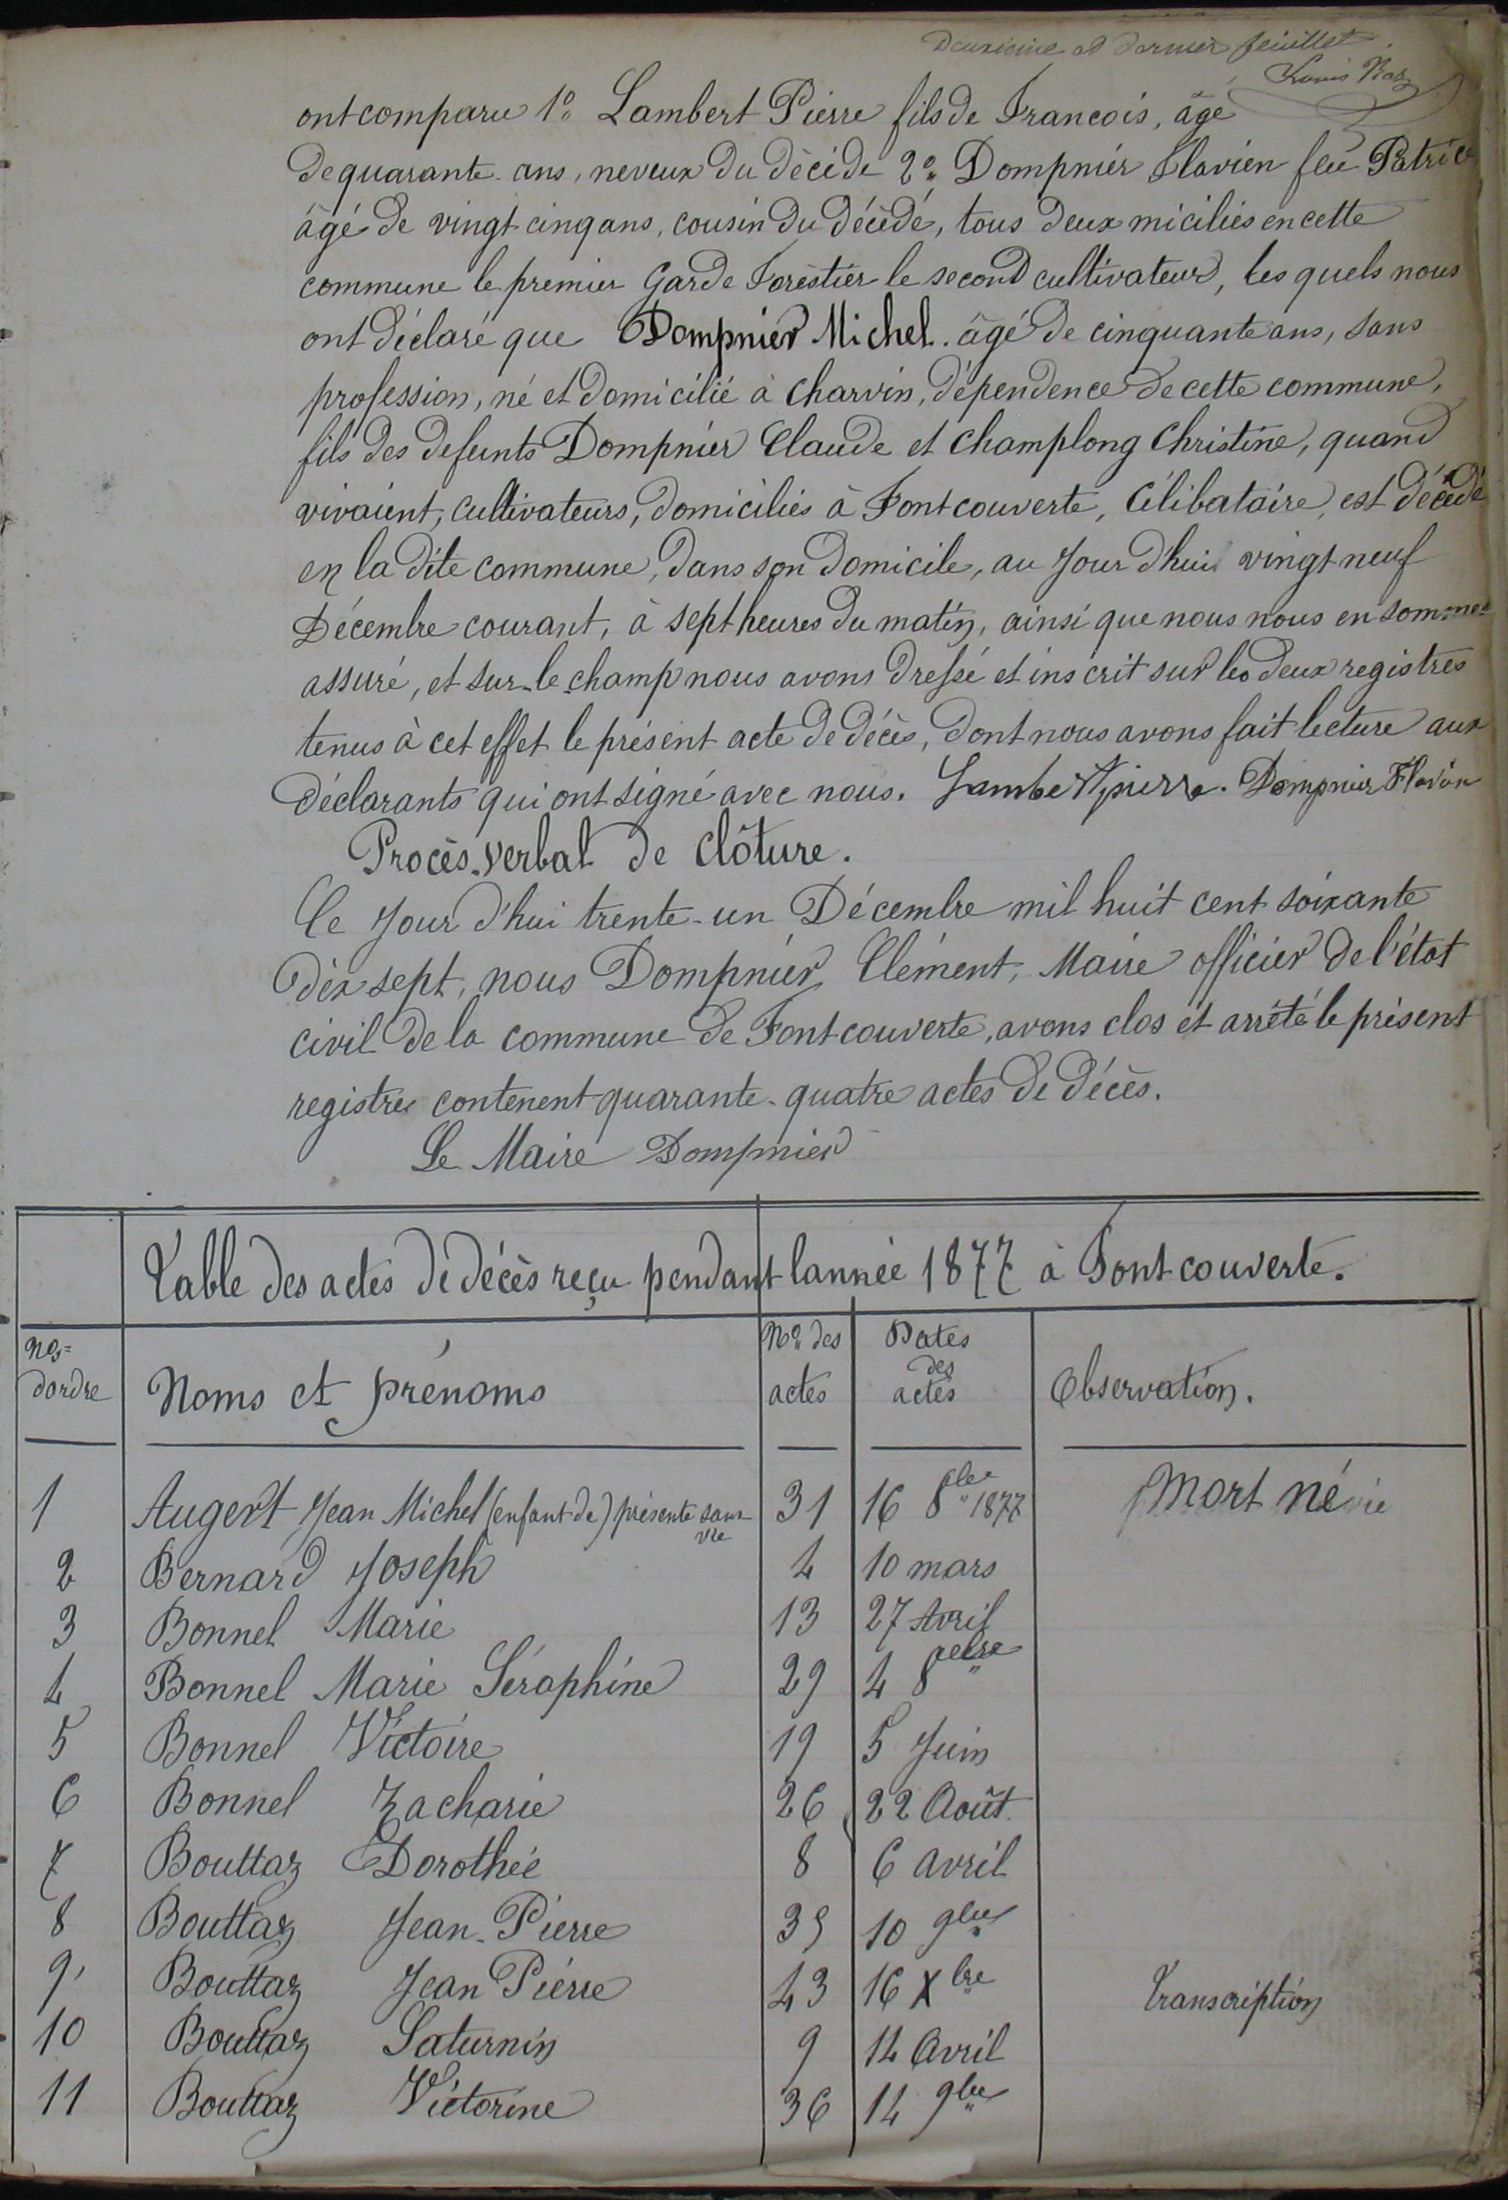 Deuxième et dernier feuillet.
Louis Naz
ont comparu 1º Lambert Pierre fils de Francois, âgé
de quarante-ans, neveux du décéde 2º. Dompnier Flavien feu Patrice
âgé de vingt cinq ans, cousin du décédé, tous deux miciliés en cette
commune le premier Garde Forestier le second cultivateur, les quels nous
ont déclaré que Dompnier Michel. âgé de cinquante ans, sans
profession, né et domicilié à Charvin, dépendence de cette commune,
fils des defunts Dompnier Claude et Champlong Christine, quand
vivaient, cultivateurs, domiciliés à Fontcouverte, Célibataire, est décédé
en la dite commune, dans son domicile, au Jour d'hui vingt neuf
Décembre courant, à sept heures du matin, ainsi que nous nous en sommes
assuré, et sur-le-champ nous avons dressé et inscrit sur les deux registres
tenus à cet effet le présent acte de décès, dont nous avons fait lecture aux
déclarants qui ont signé avec nous. Lambert pierre. Dompnier Flavien
Procès-verbal de clôture.
Ce Jour d'hui trente-un Décembre mil huit cent soixante
dix sept, nous Dompnier Clément, Maire officier de l'état
civil de la commune de Fontcouverte, avons clos et arrêté le présent
registre contenent quarante-quatre actes de décès.
Le Maire Dompnier
Table des actes de décès reçu pendant lannée 1877 à Fontcouverte.
Nos= dordre
Noms et prénoms
Nº des actes
Dates des actes
Observation.
1 Augert Jean Michel (enfant de) présente sans vie 31 16 8bre 1877 Mort né vie
2 Bernard Joseph 4 10 mars
3 Bonnel Marie 13 27 Avril
4 Bonnel Marie Séraphine 29 4 8bre
5 Bonnel Victoire 19 5 Juin
6 Bonnel Zacharie 26 22 Août.
7 Bouttaz Dorothée 8 6 avril
8 Bouttaz Jean-Pierre 35 10 9bre
9, Bouttaz Jean Pierre 43 16 Xbre Transcription
10 Bouttaz Saturnin 9 14 Avril
11 Bouttaz Victorine 36 14 9bre